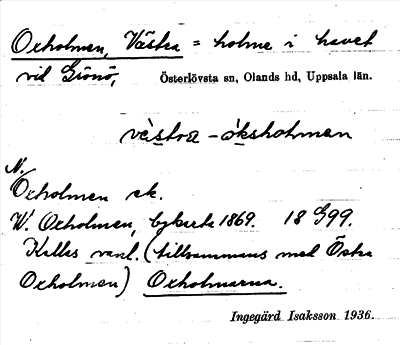 Oxholmen, Västra = holme i havet
vid Gränö, Österlövsta sn, Olands hd, Uppsala län.
västra - óksholmen
N.
Oxholmen ek.
W. Oxholmen, 1869. 18 G99.
Kallas vanl. (tillsammans med Östra
Oxholmen) Oxholmarna.
Ingegärd Isaksson 1936.